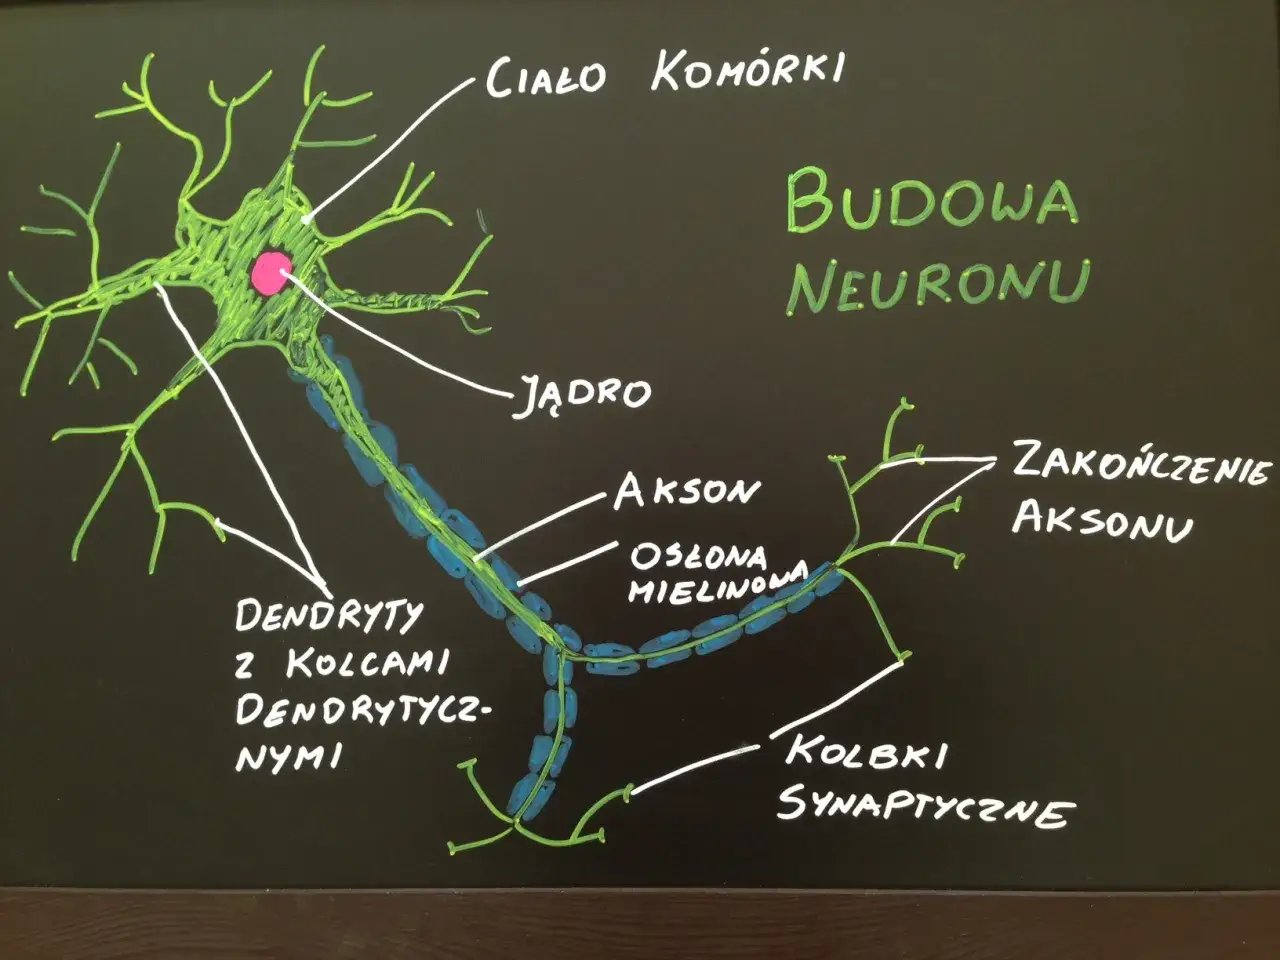 CIAŁO KOMÓRKI
BUDOWA
NEURONU
JĄDRO
AKSON
OSŁONA
MIELINONA
ZAKOŃCZENIE
AKSONU
DENDRYTY
Z KOLCAMI
DENDRYTYCZ-
NYMI
KOLBKI
SYNAPTYCZNE